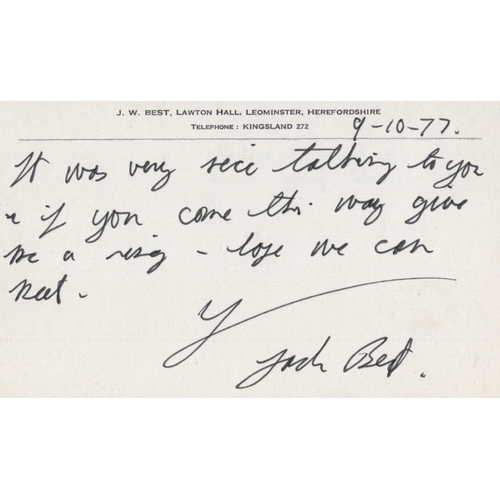 J. W. BEST, LAWTON HALL, LEOMINSTER, HEREFORDSHIRE
TELEPHONE: KINGSLAND 272
9-10-77.
It was very nice talking to you
& if you come this way give
me a ring – hope we can
meet.
Y
Jack Best.